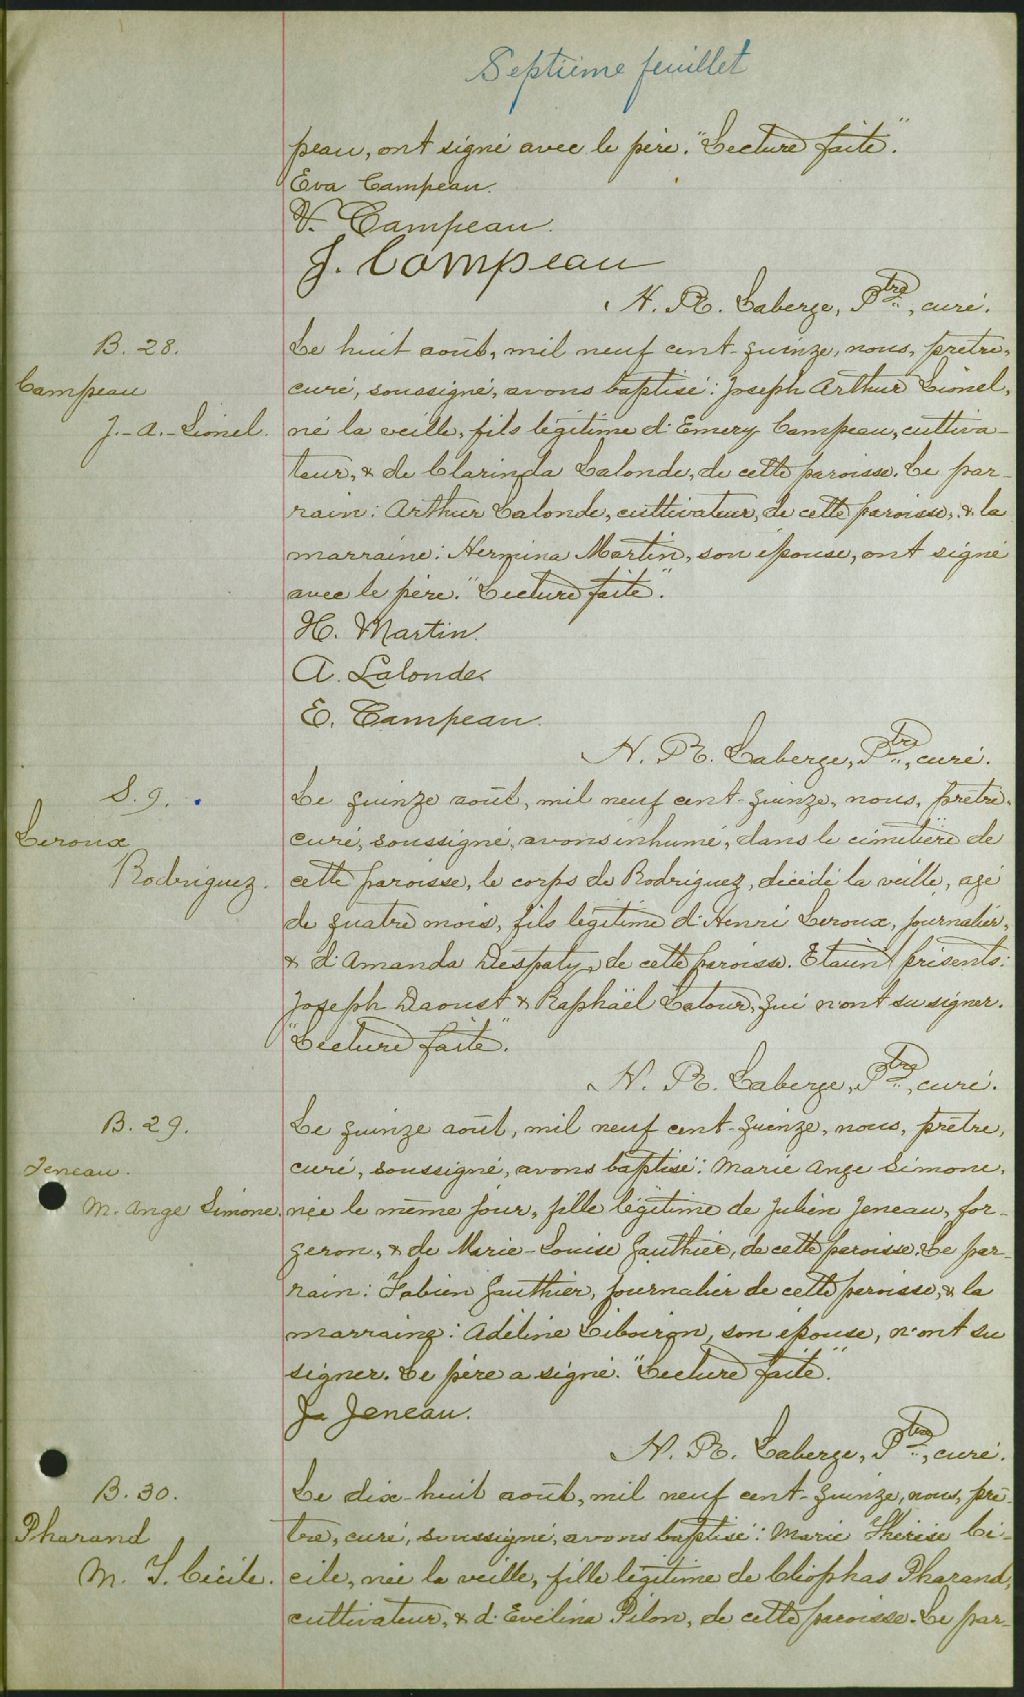 Septième feuillet
peau, ont signé avec le père. "Lecture faite".
Eva Campeau.
V. Campeau.
J. Campeau
N. R. Laberge, Ptre, curé.
B. 28.
Campeau
J.-A.-Lionel.
Le huit août, mil neuf cent-quinze, nous, prêtre,
curé, soussigné, avons baptisé: Joseph Arthur Lionel,
né la veille, fils légitime d'Emery Campeau, cultiva-
teur, & de Clarinda Lalonde, de cette paroisse. Le par-
rain: Arthur Lalonde, cultivateur, de cette paroisse, & la
marraine: Hermina Martin, son épouse, ont signé
avec le père. "Lecture faite".
H. Martin.
A. Lalonde.
E. Campeau.
N. R. Laberge, Ptre, curé.
S. 9.
Leroux
Rodriguez.
Le quinze août, mil neuf cent-quinze, nous, prêtre,
curé, soussigné, avons inhumé, dans le cimetière de
cette paroisse, le corps de Rodriguez, décédé la veille, agé
de quatre mois, fils légitime d'Henri Leroux, journalier,
& d'Amanda Despaty, de cette paroisse. Etaient présents:
Joseph Daoust & Raphaël Latour, qui n'ont su signer.
"Lecture faite".
N. R. Laberge, Ptre, curé.
B. 29.
Jeneau.
M. Ange Simone.
Le quinze août, mil neuf cent-quinze, nous, prêtre,
curé, soussigné, avons baptisé: Marie Ange Simone,
née le même jour, fille légitime de Julien Jeneau, for-
geron, & de Marie-Louise Gauthier, de cette paroisse. Le par-
rain: Fabien Gauthier, journalier de cette paroisse, & la
marraine: Adéline Liboiron, son épouse, n'ont su
signer. Le père a signé. "Lecture faite".
J. Jeneau.
N. R. Laberge, Ptre, curé.
B. 30.
Pharand
M. T. Cécile.
Le dix-huit août, mil neuf cent-quinze, nous, prê-
tre, curé, soussigné, avons baptisé: Marie Thérèse Cé-
cile, née la veille, fille légitime de Cléophas Pharand,
cultivateur, & d'Evelina Pilon, de cette paroisse. Le par-